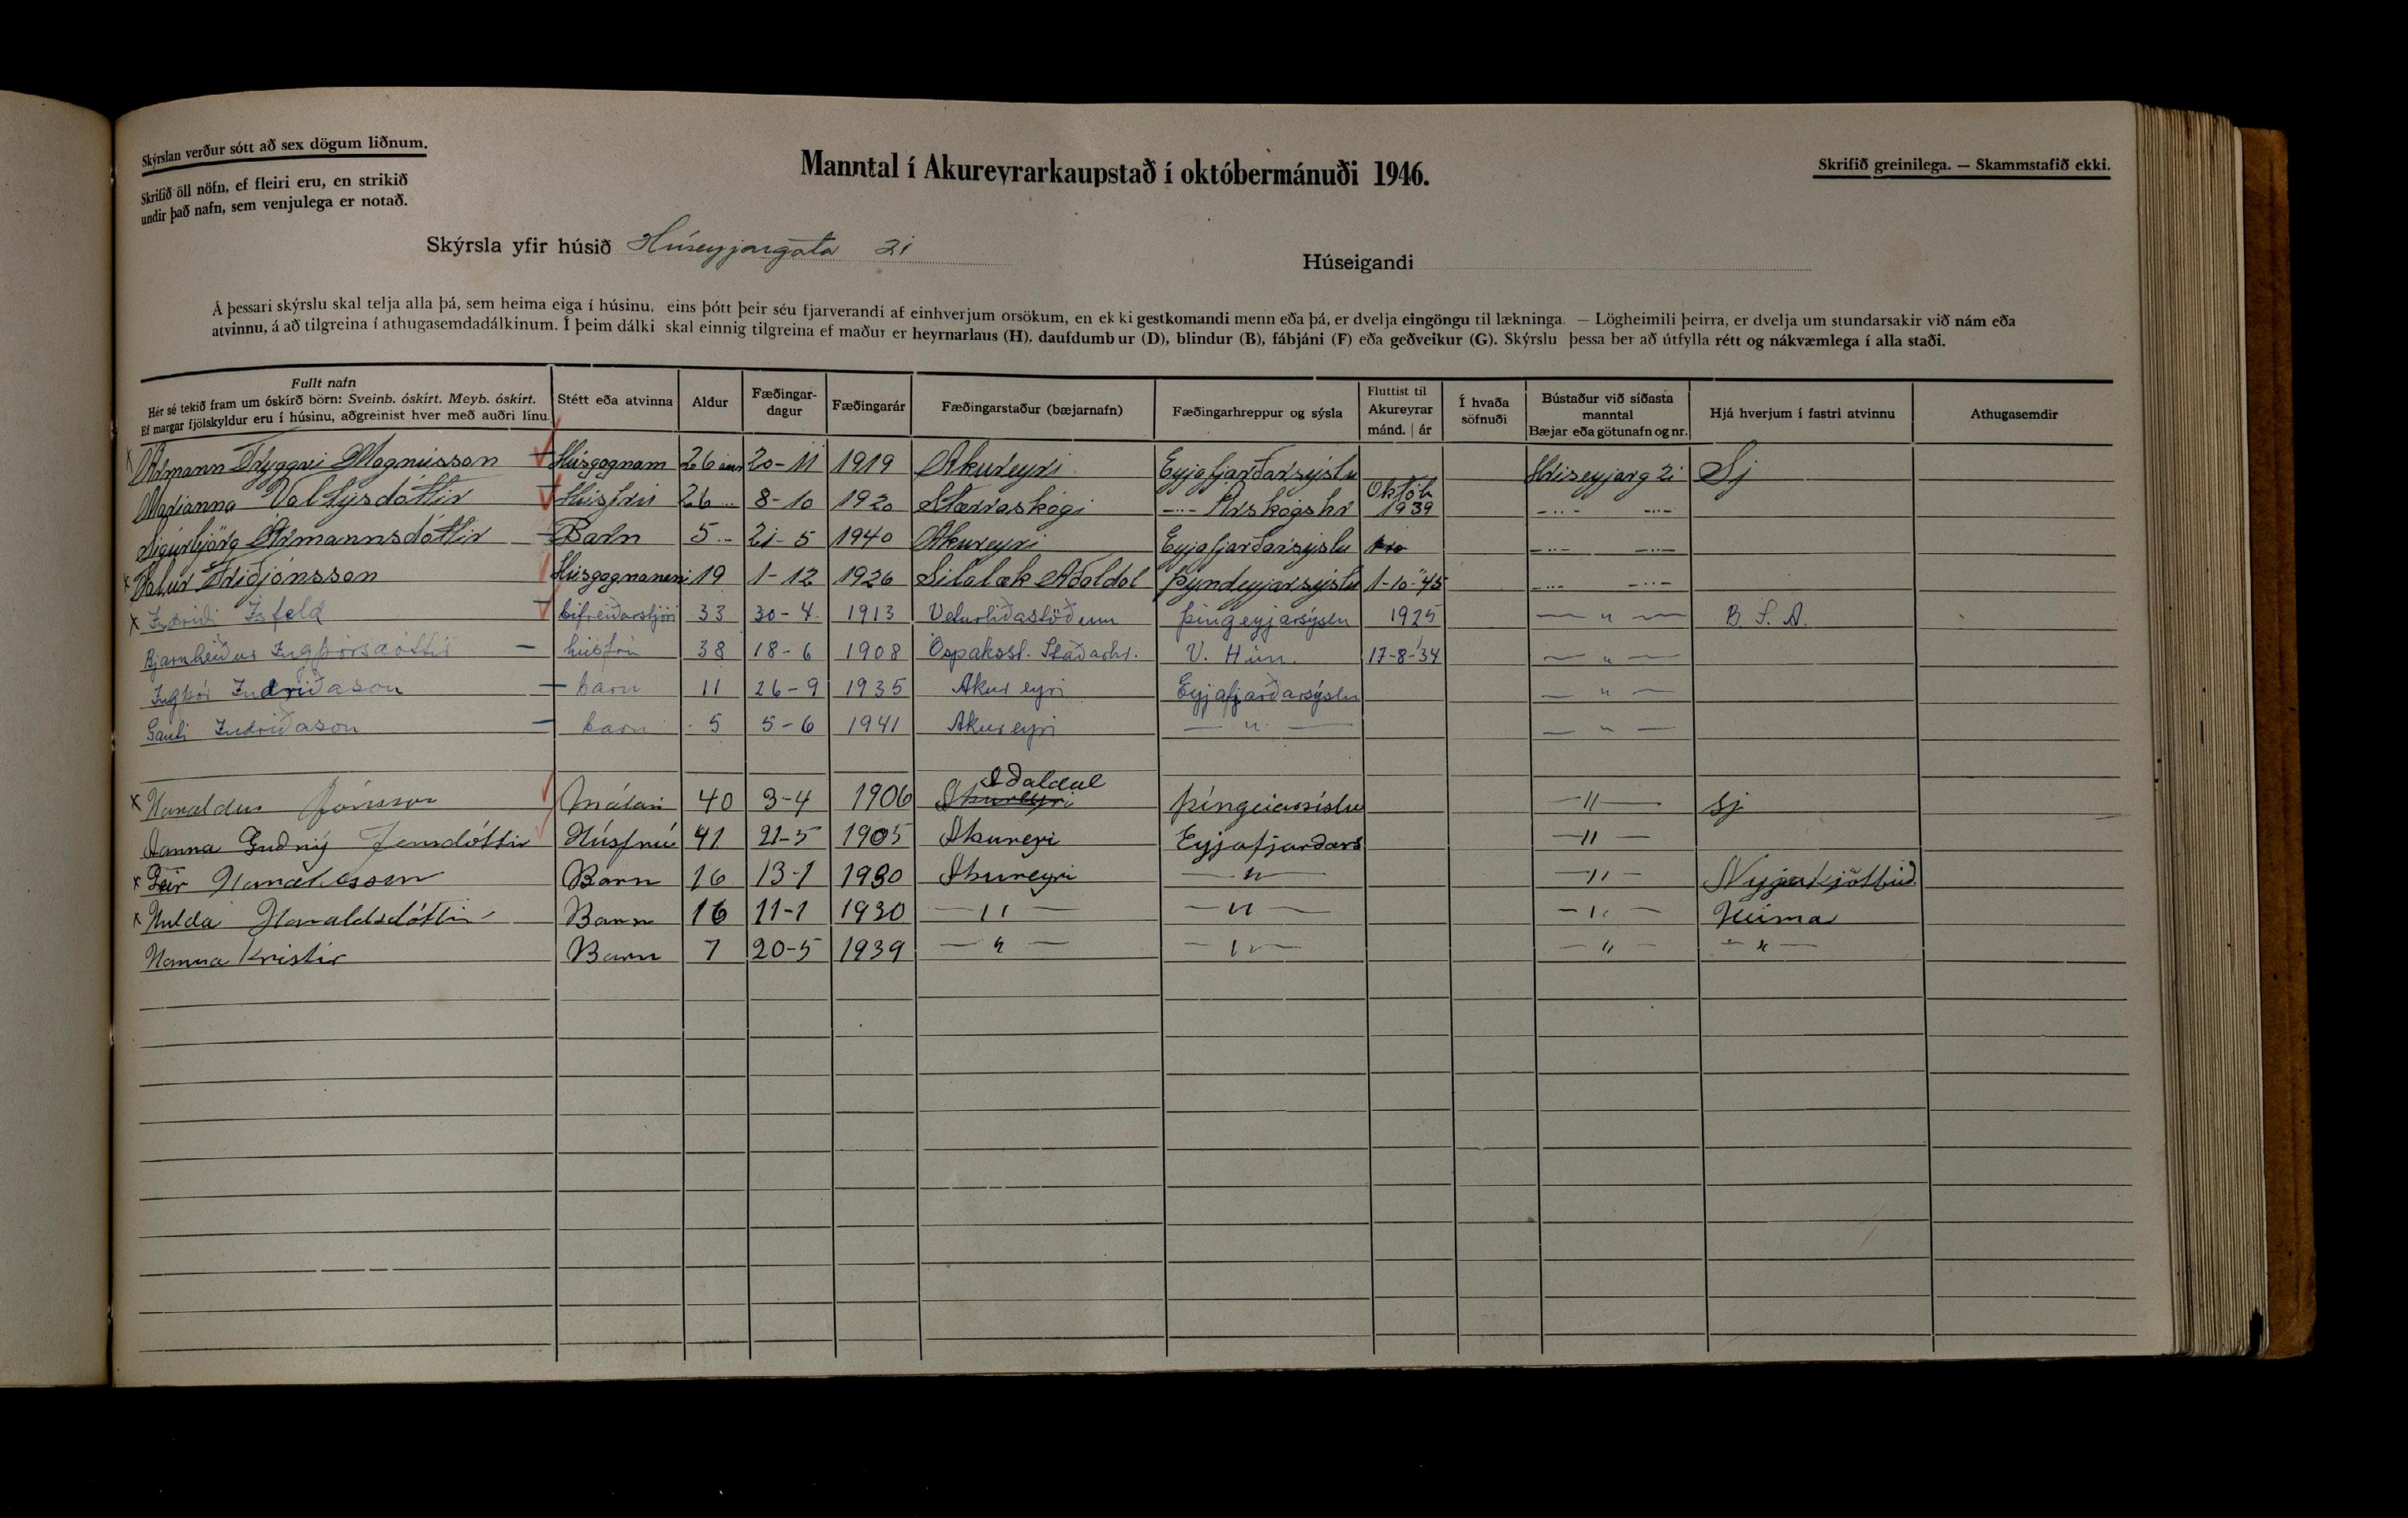 Skýrslan verður sótt að sex dögum liðnum.
Skrifið öll nöfn, ef fleiri eru, en strikið
undir það nafn, sem venjulega er notað.
Manntal í Akureyrarkaupstað í októbermánuði 1946.
Skrifið greinilega. — Skammstafið ekki.
Skýrsla yfir húsið Hríseyjargata 21
Húseigandi
Á þessari skýrslu skal telja alla þá, sem heima eiga í húsinu, eins þótt þeir séu fjarverandi af einhverjum orsökum, en ekki gestkomandi menn eða þá, er dvelja eingöngu til lækninga. — Lögheimili þeirra, er dvelja um stundarsakir við nám eða
atvinnu, á að tilgreina í athugasemdadálkinum. Í þeim dálki skal einnig tilgreina ef maður er heyrnarlaus (H), daufdumbur (D), blindur (B), fábjáni (F) eða geðveikur (G). Skýrslu þessa ber að útfylla rétt og nákvæmlega í alla staði.
Fullt nafn Hér sé tekið fram um óskírð börn: Sveinb. óskírt. Meyb. óskírt. Ef margar fjölskyldur eru í húsinu, aðgreinist hver með auðri línu. Stétt eða atvinna Aldur Fæðingar-dagur Fæðingarár Fæðingarstaður (bæjarnafn) Fæðingarhreppur og sýsla Fluttist til Akureyrar mánd. | ár Í hvaða söfnuði Bústaður við síðasta manntal Bæjar eða götunafn og nr. Hjá hverjum í fastri atvinnu Athugasemdir
Ármann Tryggvi Magnússon Húsgagnam 26 ára 20-11 1919 Akureyri Eyjafjarðarsýslu Hríseyjarg 21 Sj
Marianna Valtýsdóttir Húsfrú 26 8-10 1920 Stærraskógi —··— Árskógshr Októb 1939 —··— —··—
Sigurbjörg Ármannsdóttir Barn 5 21-5 1940 Akureyri Eyjafjarðarsýslu —··— —··—
Valur Friðjónsson Húsgagnanemi 19 1-12 1926 Sílalæk Aðaldal Þyndeyjarsýslu 1-10-45 —··— —··—
Indriði Ísfeld bifreiðarstjóri 33 30-4. 1913 Veturliðastöðum Þingeyjarsýslu 1925 — " — B. S. A.
Bjarnheiður Ingþórsdóttir húsfrú 38 18-6 1908 Óspaksst. Staðarhr. V. Hún. 17-8-'34 — " —
Ingþór Indriðason barn 11 26-9 1935 Akureyri Eyjafjarðarsýslu — " —
Gauti Indriðason barn 5 5-6 1941 Akureyri — " — — " —
Haraldur Jónsson Málari 40 3-4 1906 Akureyri Aðaldal Þingeiarsíslu — " — Sj
Hanna Guðný Jensdóttir Húsfrú 41 21-5 1905 Akureyri Eyjafjarðars — " —
Geir Haraldsson Barn 16 13-1 1930 Akureyri — " — — " — Nýja kjötbúð
Hulda Haraldsdóttir Barn 16 11-1 1930 — " — — " — — " — Heima
Hanna Kristín Barn 7 20-5 1939 — " — — " — — " — — " —